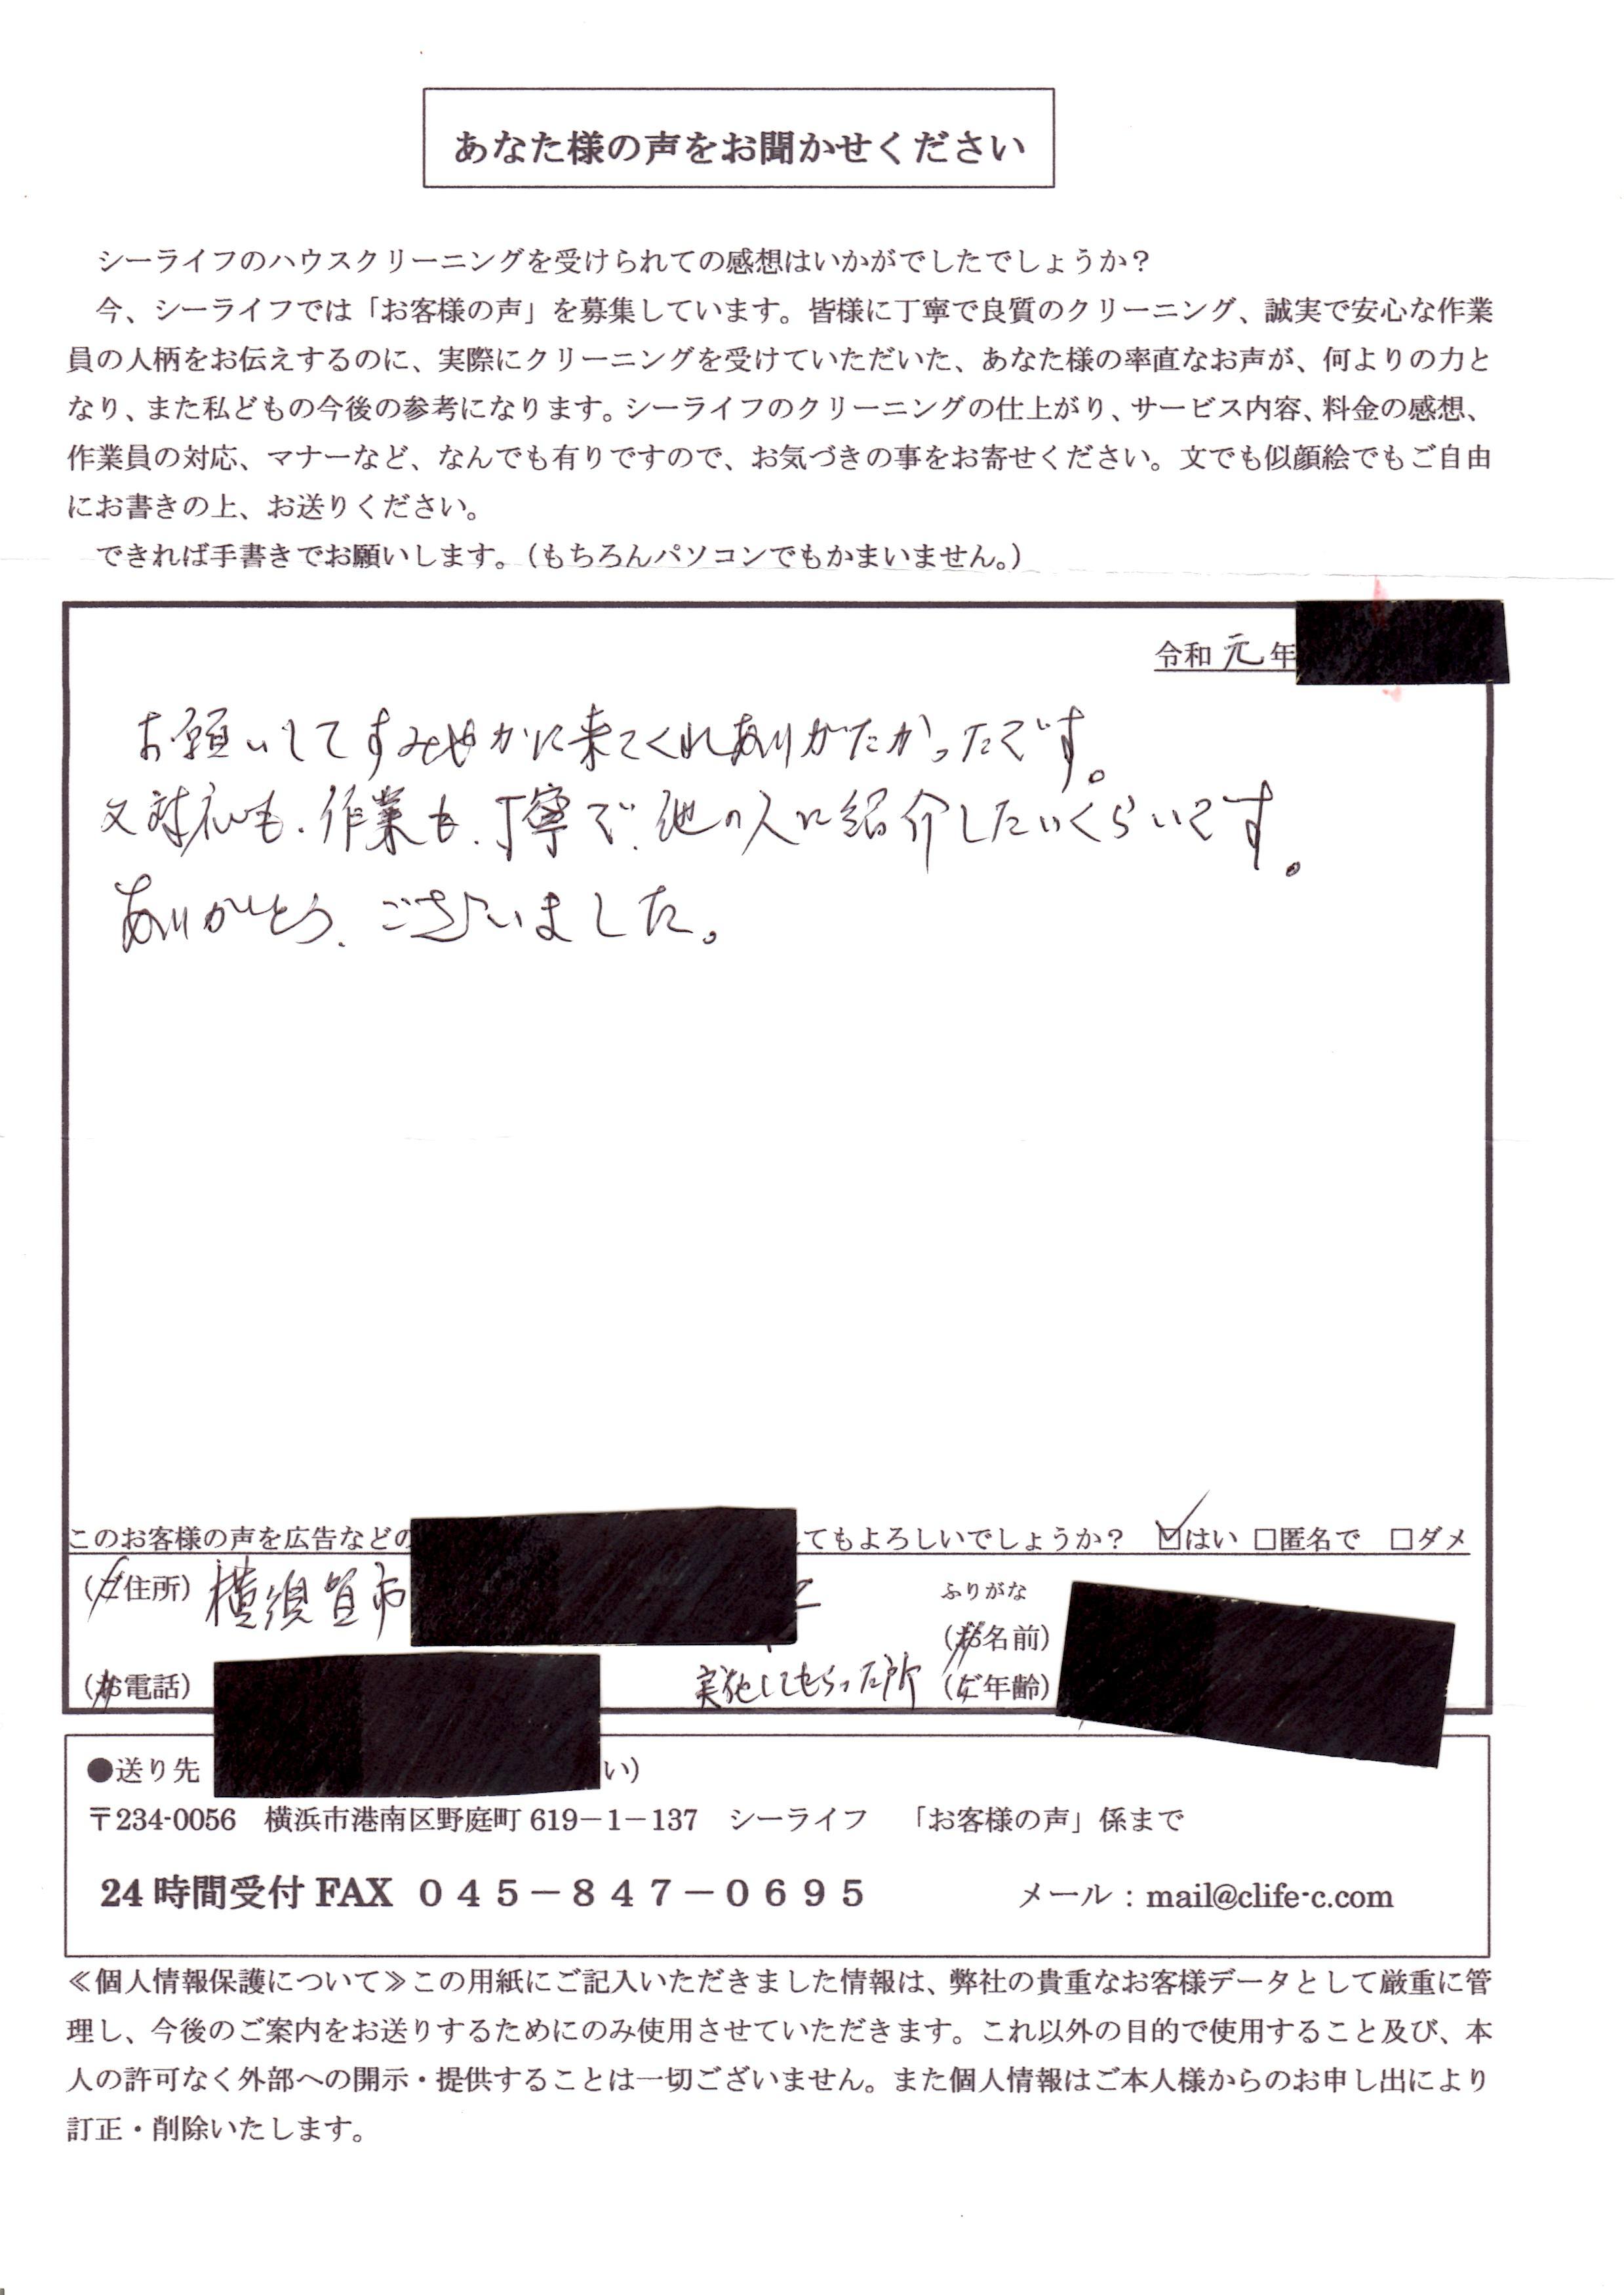 あなた様の声をお聞かせください
シーライフのハウスクリーニングを受けられての感想はいかがでしたでしょうか？
今、シーライフでは「お客様の声」を募集しています。皆様に丁寧で良質のクリーニング、誠実で安心な作業
員の人柄をお伝えするのに、実際にクリーニングを受けていただいた、あなた様の率直なお声が、何よりの力と
なり、また私どもの今後の参考になります。シーライフのクリーニングの仕上がり、サービス内容、料金の感想、
作業員の対応、マナーなど、なんでも有りですので、お気づきの事をお寄せください。文でも似顔絵でもご自由
にお書きの上、お送りください。
できれば手書きでお願いします。（もちろんパソコンでもかまいません。）
令和 元 年
お願いしてすみやかに来てくれありがたかったです。
又対応も、作業も、丁寧で、他の人に紹介したいくらいです。
ありがとう、ございました。
このお客様の声を広告などの てもよろしいでしょうか？ ☑はい □匿名で □ダメ
（ご住所） 横須賀市
ふりがな
（お名前）
（お電話） 実施してもらった所 （ご年齢）
●送り先 い）
〒234-0056 横浜市港南区野庭町 619－1－137 シーライフ 「お客様の声」係まで
24 時間受付 FAX ０４５－８４７－０６９５ メール：mail@clife-c.com
≪個人情報保護について≫この用紙にご記入いただきました情報は、弊社の貴重なお客様データとして厳重に管
理し、今後のご案内をお送りするためにのみ使用させていただきます。これ以外の目的で使用すること及び、本
人の許可なく外部への開示・提供することは一切ございません。また個人情報はご本人様からのお申し出により
訂正・削除いたします。